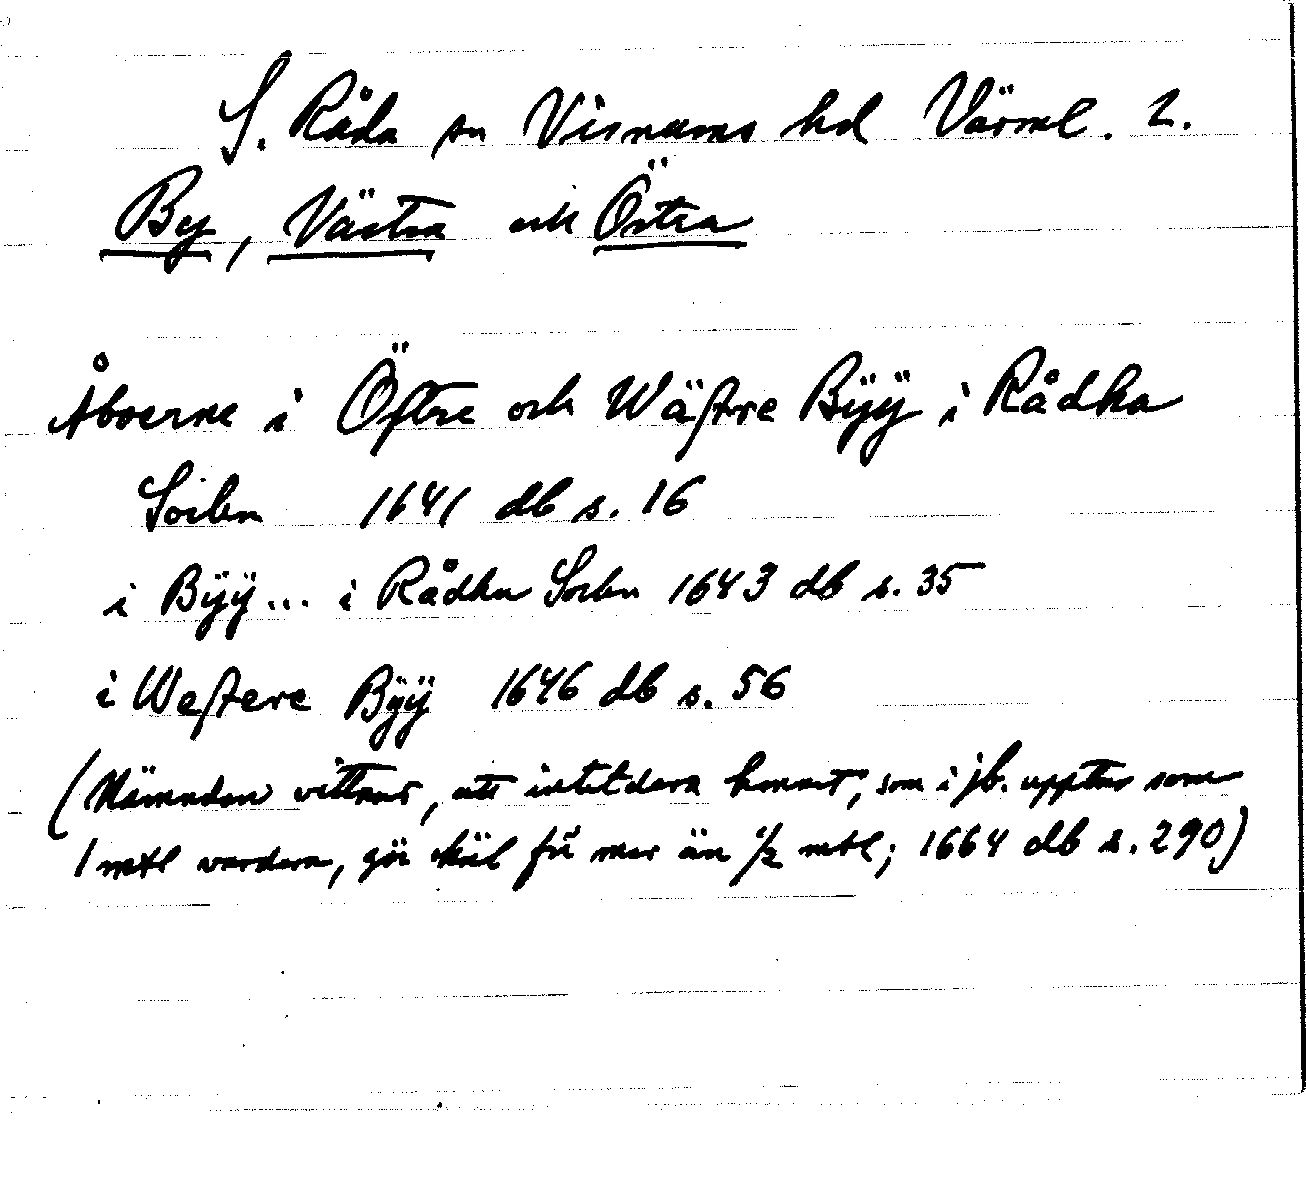 S. Råda sn Visnums hd Värml. 2.
By, Västra och Östra
Åboerne i Öſtre och Wäſtre Bÿÿ i Rådha
Sochn 1641 db s. 16
i Bÿÿ... i Rådha Sochn 1643 db s. 35
i Weſtere Bÿÿ 1646 db s. 56
(Nämnden vittnar, att intetdera hemmt, som i jb. upptas som
1 mtl vardera, gör skäl för mer än 1/2 mtl; 1664 db s. 290)